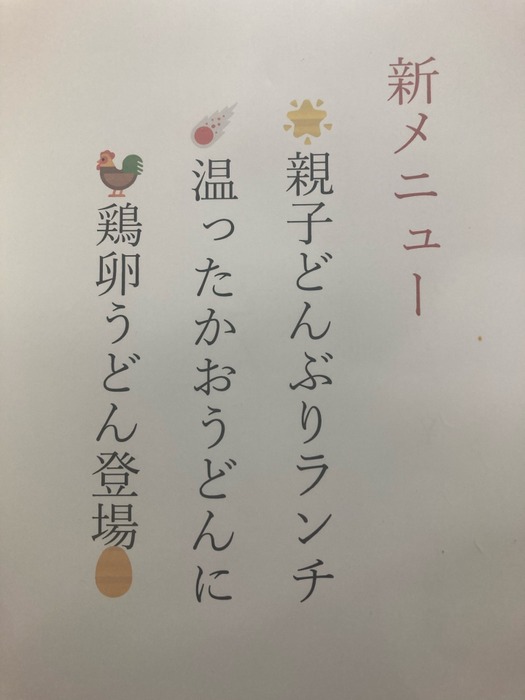 新メニュー
🌟親子どんぶりランチ
☄️温ったかおうどんに
🐓鶏卵うどん登場🥚